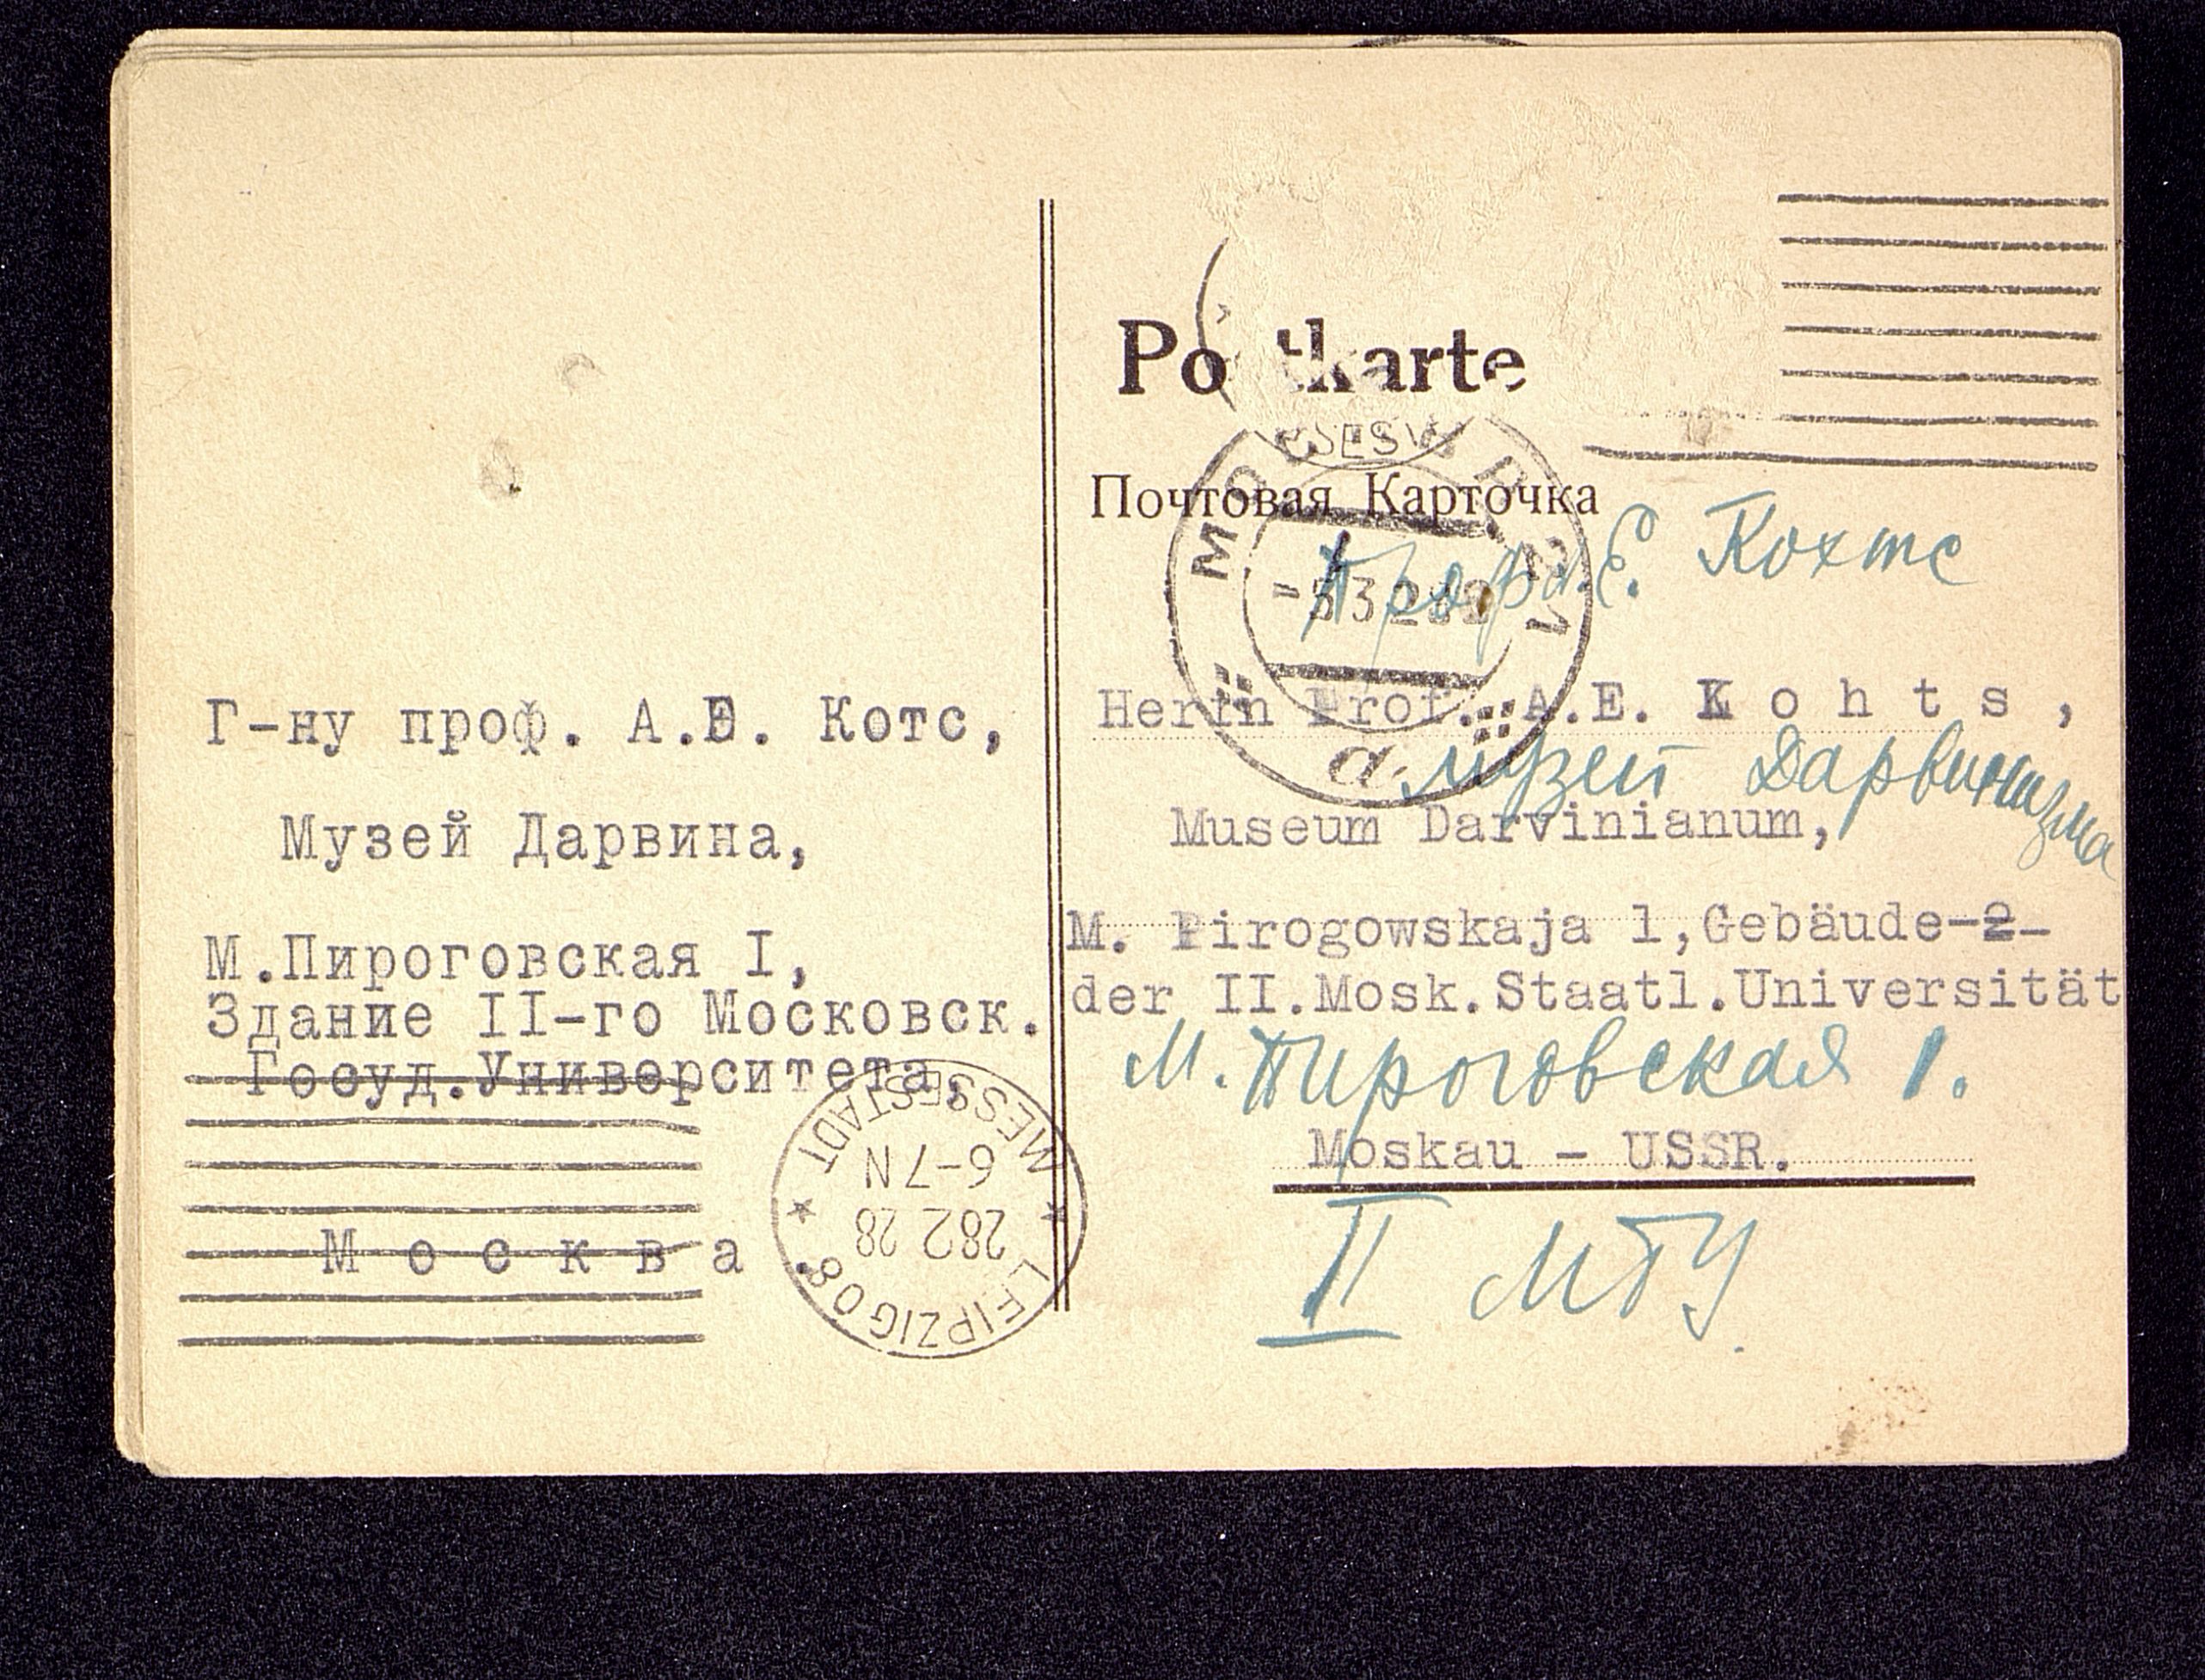 Г-ну проф. А.Е. Котс,
Музей Дарвина,
М.Пироговская I,
Здание II-го Московск.
Госуд.Университета,
Москва.
MESSESTADT
6-7 N
28 2 28
LEIPZIG O8
Postkarte
Почтовая Карточка
Проф. А. Е. Кохтс
-5 3 28
Herrn Prof. A.E. Kohts,
а
музей Дарвинизма
Museum Darvinianum,
M. Pirogowskaja 1,Gebäude-2-
der II.Mosk.Staatl.Universität
М. Пироговская 1.
Moskau - USSR.
II МГУ.